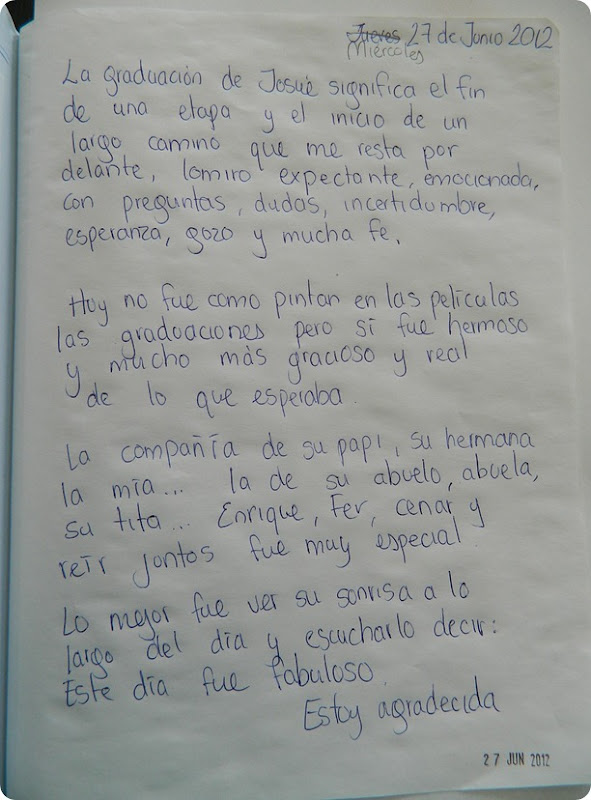 Jueves 27 de Junio 2012
Miércoles
La graduación de Josué significa el fin
de una etapa y el inicio de un
largo camino que me resta por
delante, lo miro expectante, emocionada,
con preguntas, dudas, incertidumbre,
esperanza, gozo y mucha fe.
Hoy no fue como pintan en las películas
las graduaciones pero sí fue hermoso
y mucho más gracioso y real
de lo que esperaba.
La compañía de su papi, su hermana
la mía... la de su abuelo, abuela,
su tita... Enrique, Fer, cenar y
reír juntos fue muy especial.
Lo mejor fue ver su sonrisa a lo
largo del día y escucharlo decir:
Este día fue fabuloso.
Estoy agradecida
27 JUN 2012